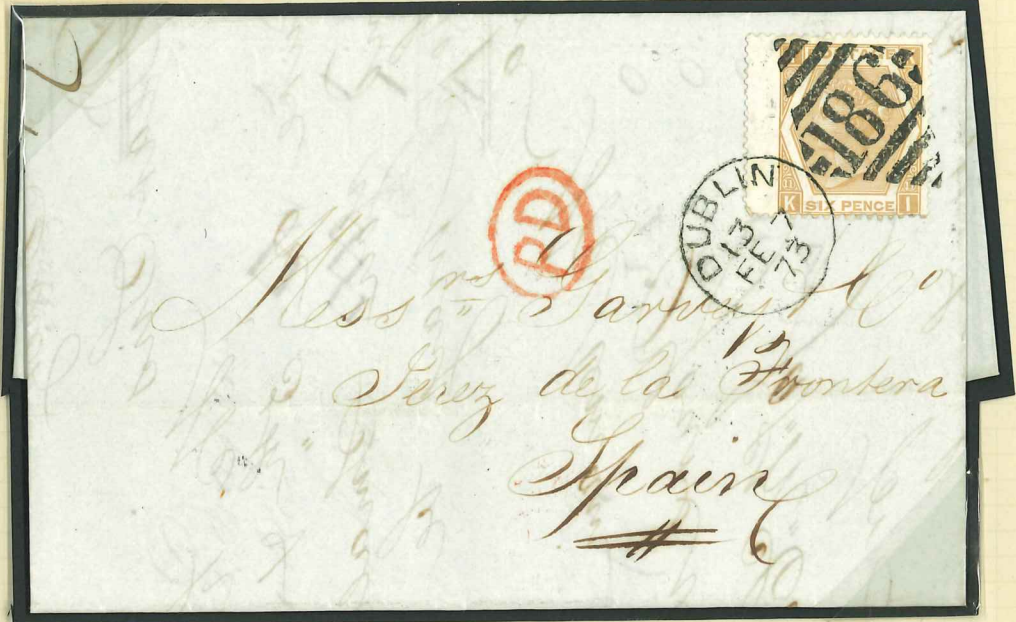 186
SIX PENCE
K I
DUBLIN
13
FE 7
73
PD
Messrs Garvey & Co
Jerez de la Frontera
Spain